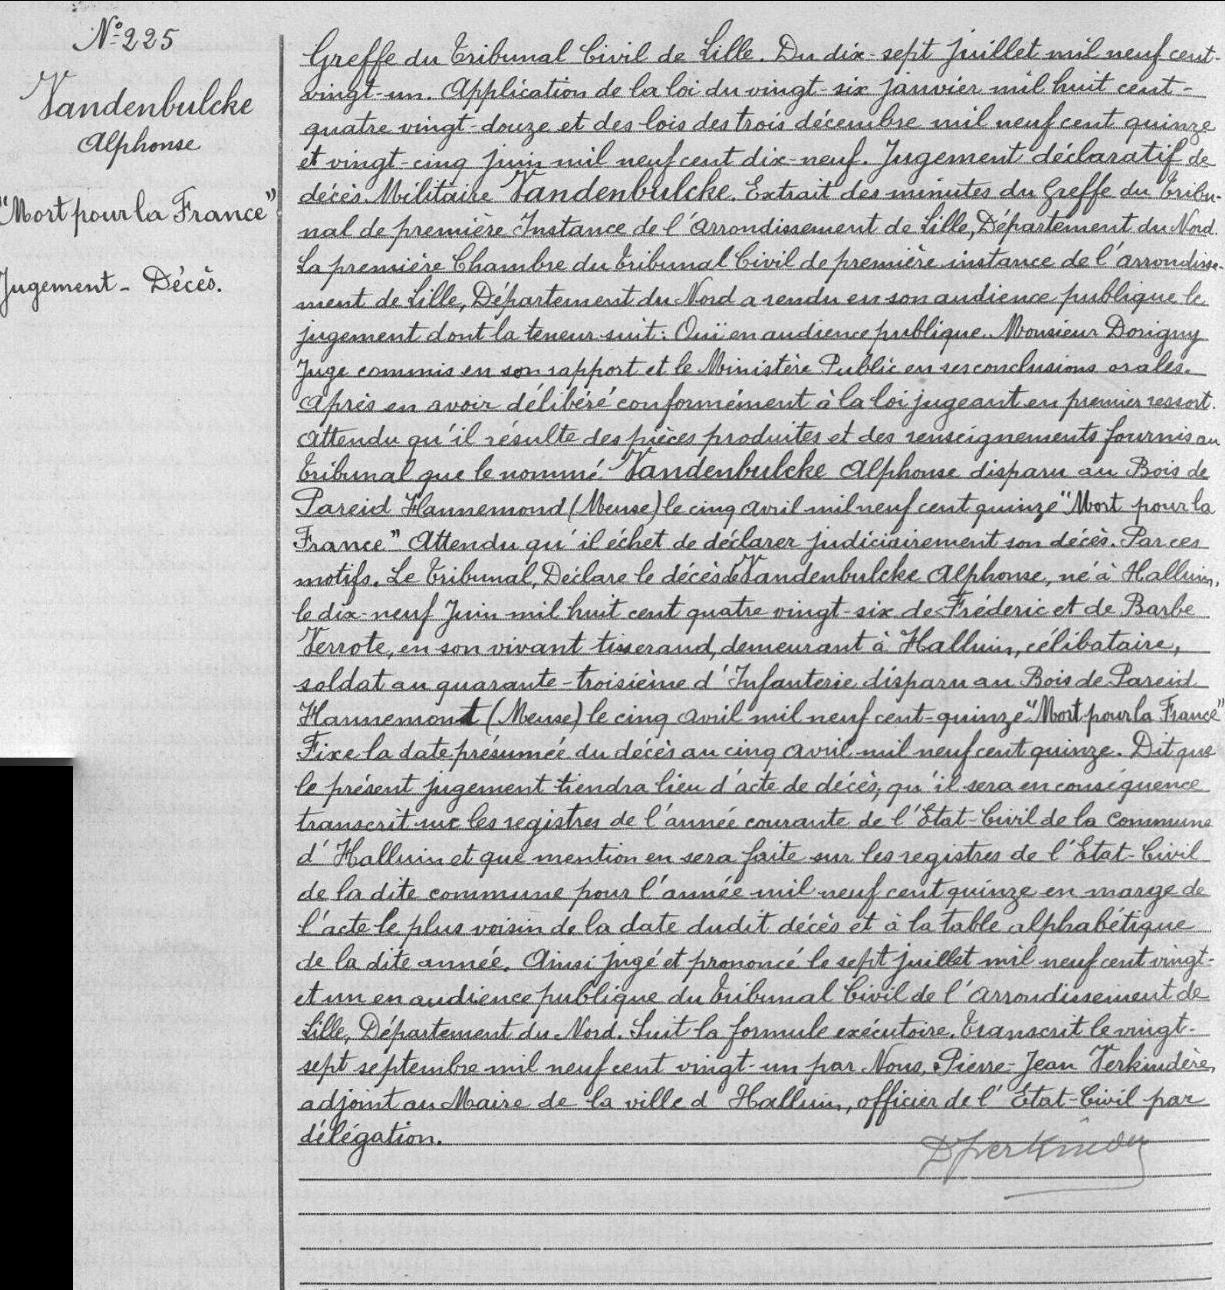 N° 225
Vandenbulcke
Alphonse
"Mort pour la France"
Jugement - Décès.
Greffe du Tribunal Civil de Lille. Du dix-sept juillet mil neuf cent-
vingt-un. Application de la loi du vingt-six janvier mil huit cent-
quatre vingt-douze et des lois des trois décembre mil neuf cent quinze
et vingt-cinq juin mil neuf cent dix-neuf. Jugement déclaratif de
décès. Militaire Vandenbulcke. Extrait des minutes du Greffe du Tribu-
nal de première Instance de l'arrondissement de Lille, Département du Nord.
La première Chambre du Tribunal Civil de première instance de l'arrondisse-
ment de Lille, Département du Nord a rendu en son audience publique le
jugement dont la teneur suit: Ouï en audience publique Monsieur Dorigny
Juge commis en son rapport et le Ministère Public en ses conclusions orales.
Après en avoir délibéré conformément à la loi jugeant en premier ressort.
Attendu qu'il résulte des pièces produites et des renseignements fournis au
Tribunal que le nommé Vandenbulcke Alphonse disparu au Bois de
Pareid Hannemond (Meuse) le cinq avril mil neuf cent quinze "Mort pour la
France" Attendu qu'il échet de déclarer judiciairement son décès. Par ces
motifs. Le Tribunal, Déclare le décès de Vandenbulcke Alphonse, né à Halluin,
le dix-neuf Juin mil huit cent quatre vingt-six de Fréderic et de Barbe
Verrote, en son vivant tisserand, demeurant à Halluin, célibataire,
soldat au quarante-troisième d'Infanterie disparu au Bois de Pareid
Hannemont (Meuse) le cinq avril mil neuf cent-quinze "Mort pour la France"
Fixe la date présumée du décès au cinq avril mil neuf cent quinze. Dit que
le présent jugement tiendra lieu d'acte de décès, qu'il sera en conséquence
transcrit sur les registres de l'année courante de l'Etat-Civil de la Commune
d'Halluin et que mention en sera faite sur les registres de l'Etat-Civil
de la dite commune pour l'année mil neuf cent quinze en marge de
l'acte le plus voisin de la date dudit décès et à la table alphabétique
de la dite année. Ainsi jugé et prononcé le sept juillet mil neuf cent vingt-
et un en audience publique du Tribunal Civil de l'arrondissement de
Lille, Département du Nord. Suit la formule exécutoire. Transcrit le vingt-
sept septembre mil neuf cent vingt-un par Nous, Pierre-Jean Verkindère,
adjoint au Maire de la ville d'Halluin, officier de l'Etat-Civil par
délégation.